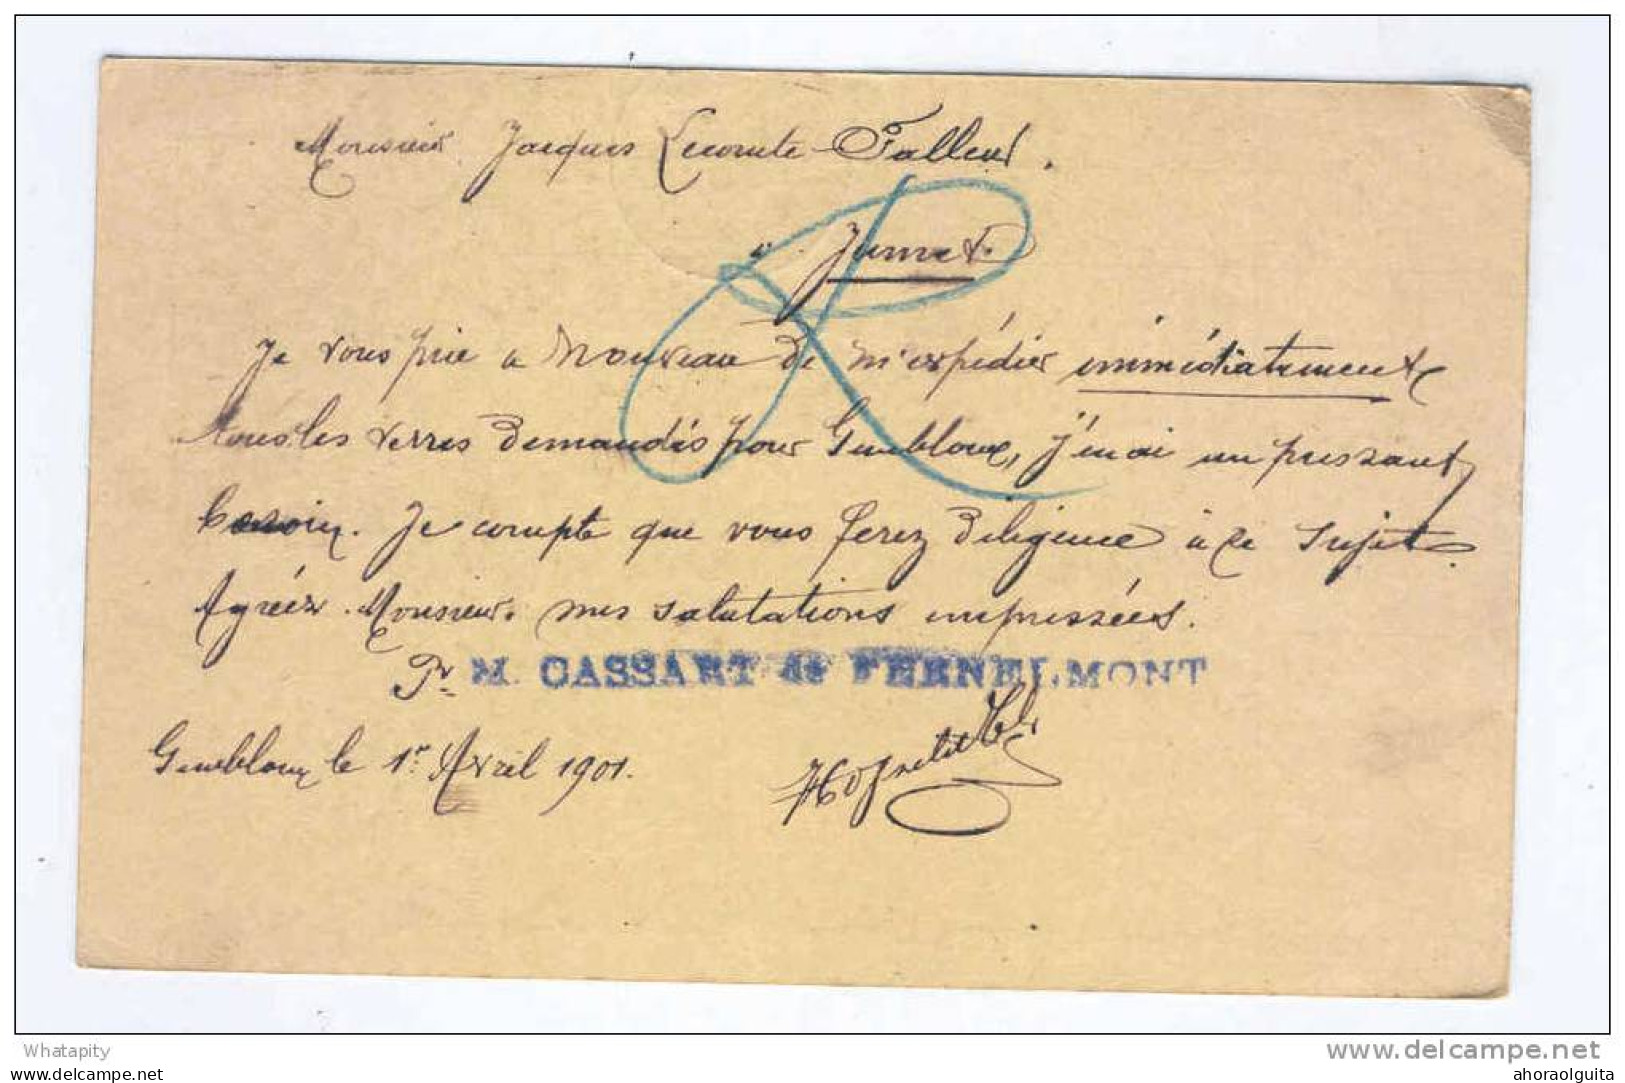 Monsieur Jacques Lecomte-Falleur.
à Jumet.
Je vous prie à nouveau de m'expédier immédiatement
tous les verres demandés pour Gembloux, j'en ai un pressant
besoin. Je compte que vous ferez diligence à ce sujet.
Agréez Monsieur, mes salutations empressées.
Pr M. CASSART de FERNELMONT
Gembloux le 1er Avril 1901.
Whatapity
www.delcampe.net
ahoraolguita